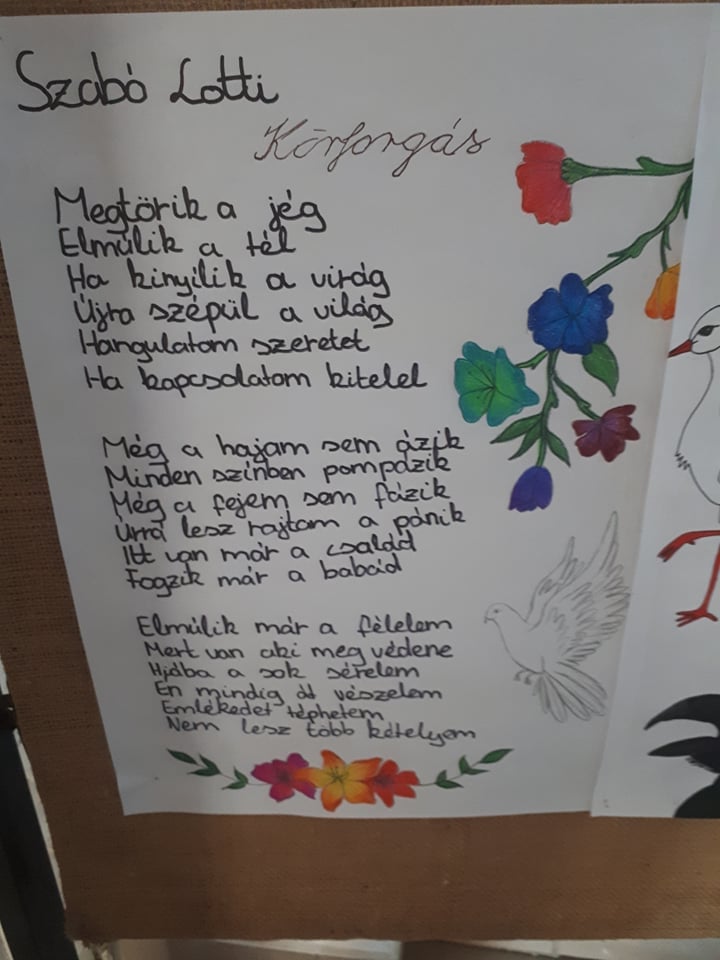 Szabó Lotti
Körforgás
Megtörik a jég
Elmúlik a tél
Ha kinyílik a virág
Újra szépül a világ
Hangulatom szeretet
Ha kapcsolatom kitelel
Még a hajam sem ázik
Minden színben pompázik
Még a fejem sem fázik
Úrrá lesz rajtam a pánik
Itt van már a család
Fogzik már a babád
Elmúlik már a félelem
Mert van aki meg védene
Hjába a sok sérelem
Én mindig át vészelem
Emlékedet téphetem
Nem lesz több kételyem